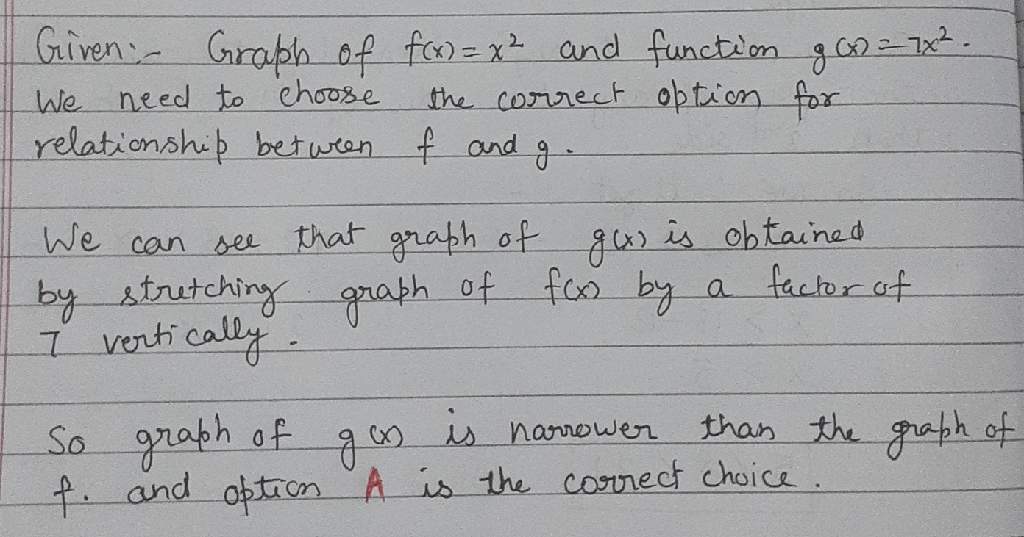 Given:- Graph of f(x) = x² and function g(x) = 7x².
We need to choose the correct option for
relationship between f and g.
We can see that graph of g(x) is obtained
by stretching graph of f(x) by a factor of
7 vertically.
So graph of g(x) is narrower than the graph of
f. and option A is the correct choice.